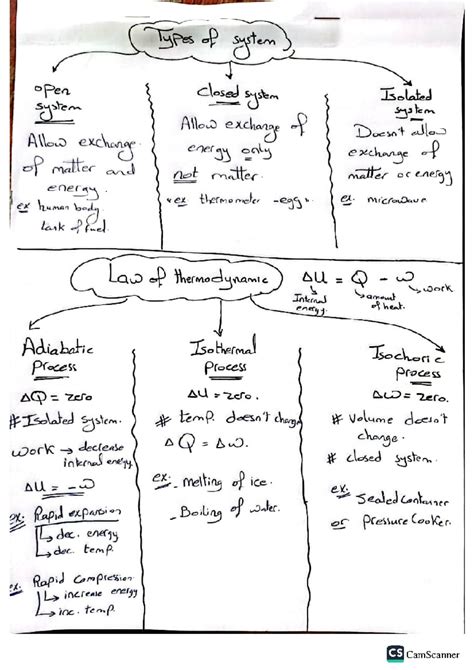 Types of system
open
system
Allow exchange
of matter and
energy.
ex human body
Closed system
Allow exchange of
energy only
not matter.
ex thermometer - egg
Isolated
system
Doesn't allow
exchange of
matter or energy
ex. microwave
Law of thermodynamic
ΔU = Q - w
Internal
energy.
amount
of heat.
work
Adiabatic
Process
ΔQ = zero
# Isolated system.
work → decrease
internal energy
ΔU = -w
ex: Rapid expansion
dec. energy
dec. temp.
ex: Rapid Compression
increase energy
inc. temp.
Isothermal
Process
ΔU = zero.
# temp. doesn't change
ΔQ = Δw.
ex: - melting of ice.
- Boiling of water.
Isochoric
process
Δw = zero.
# Volume doesn't
change.
# closed system.
ex: Sealed Container
or pressure Cooker.
CS CamScanner